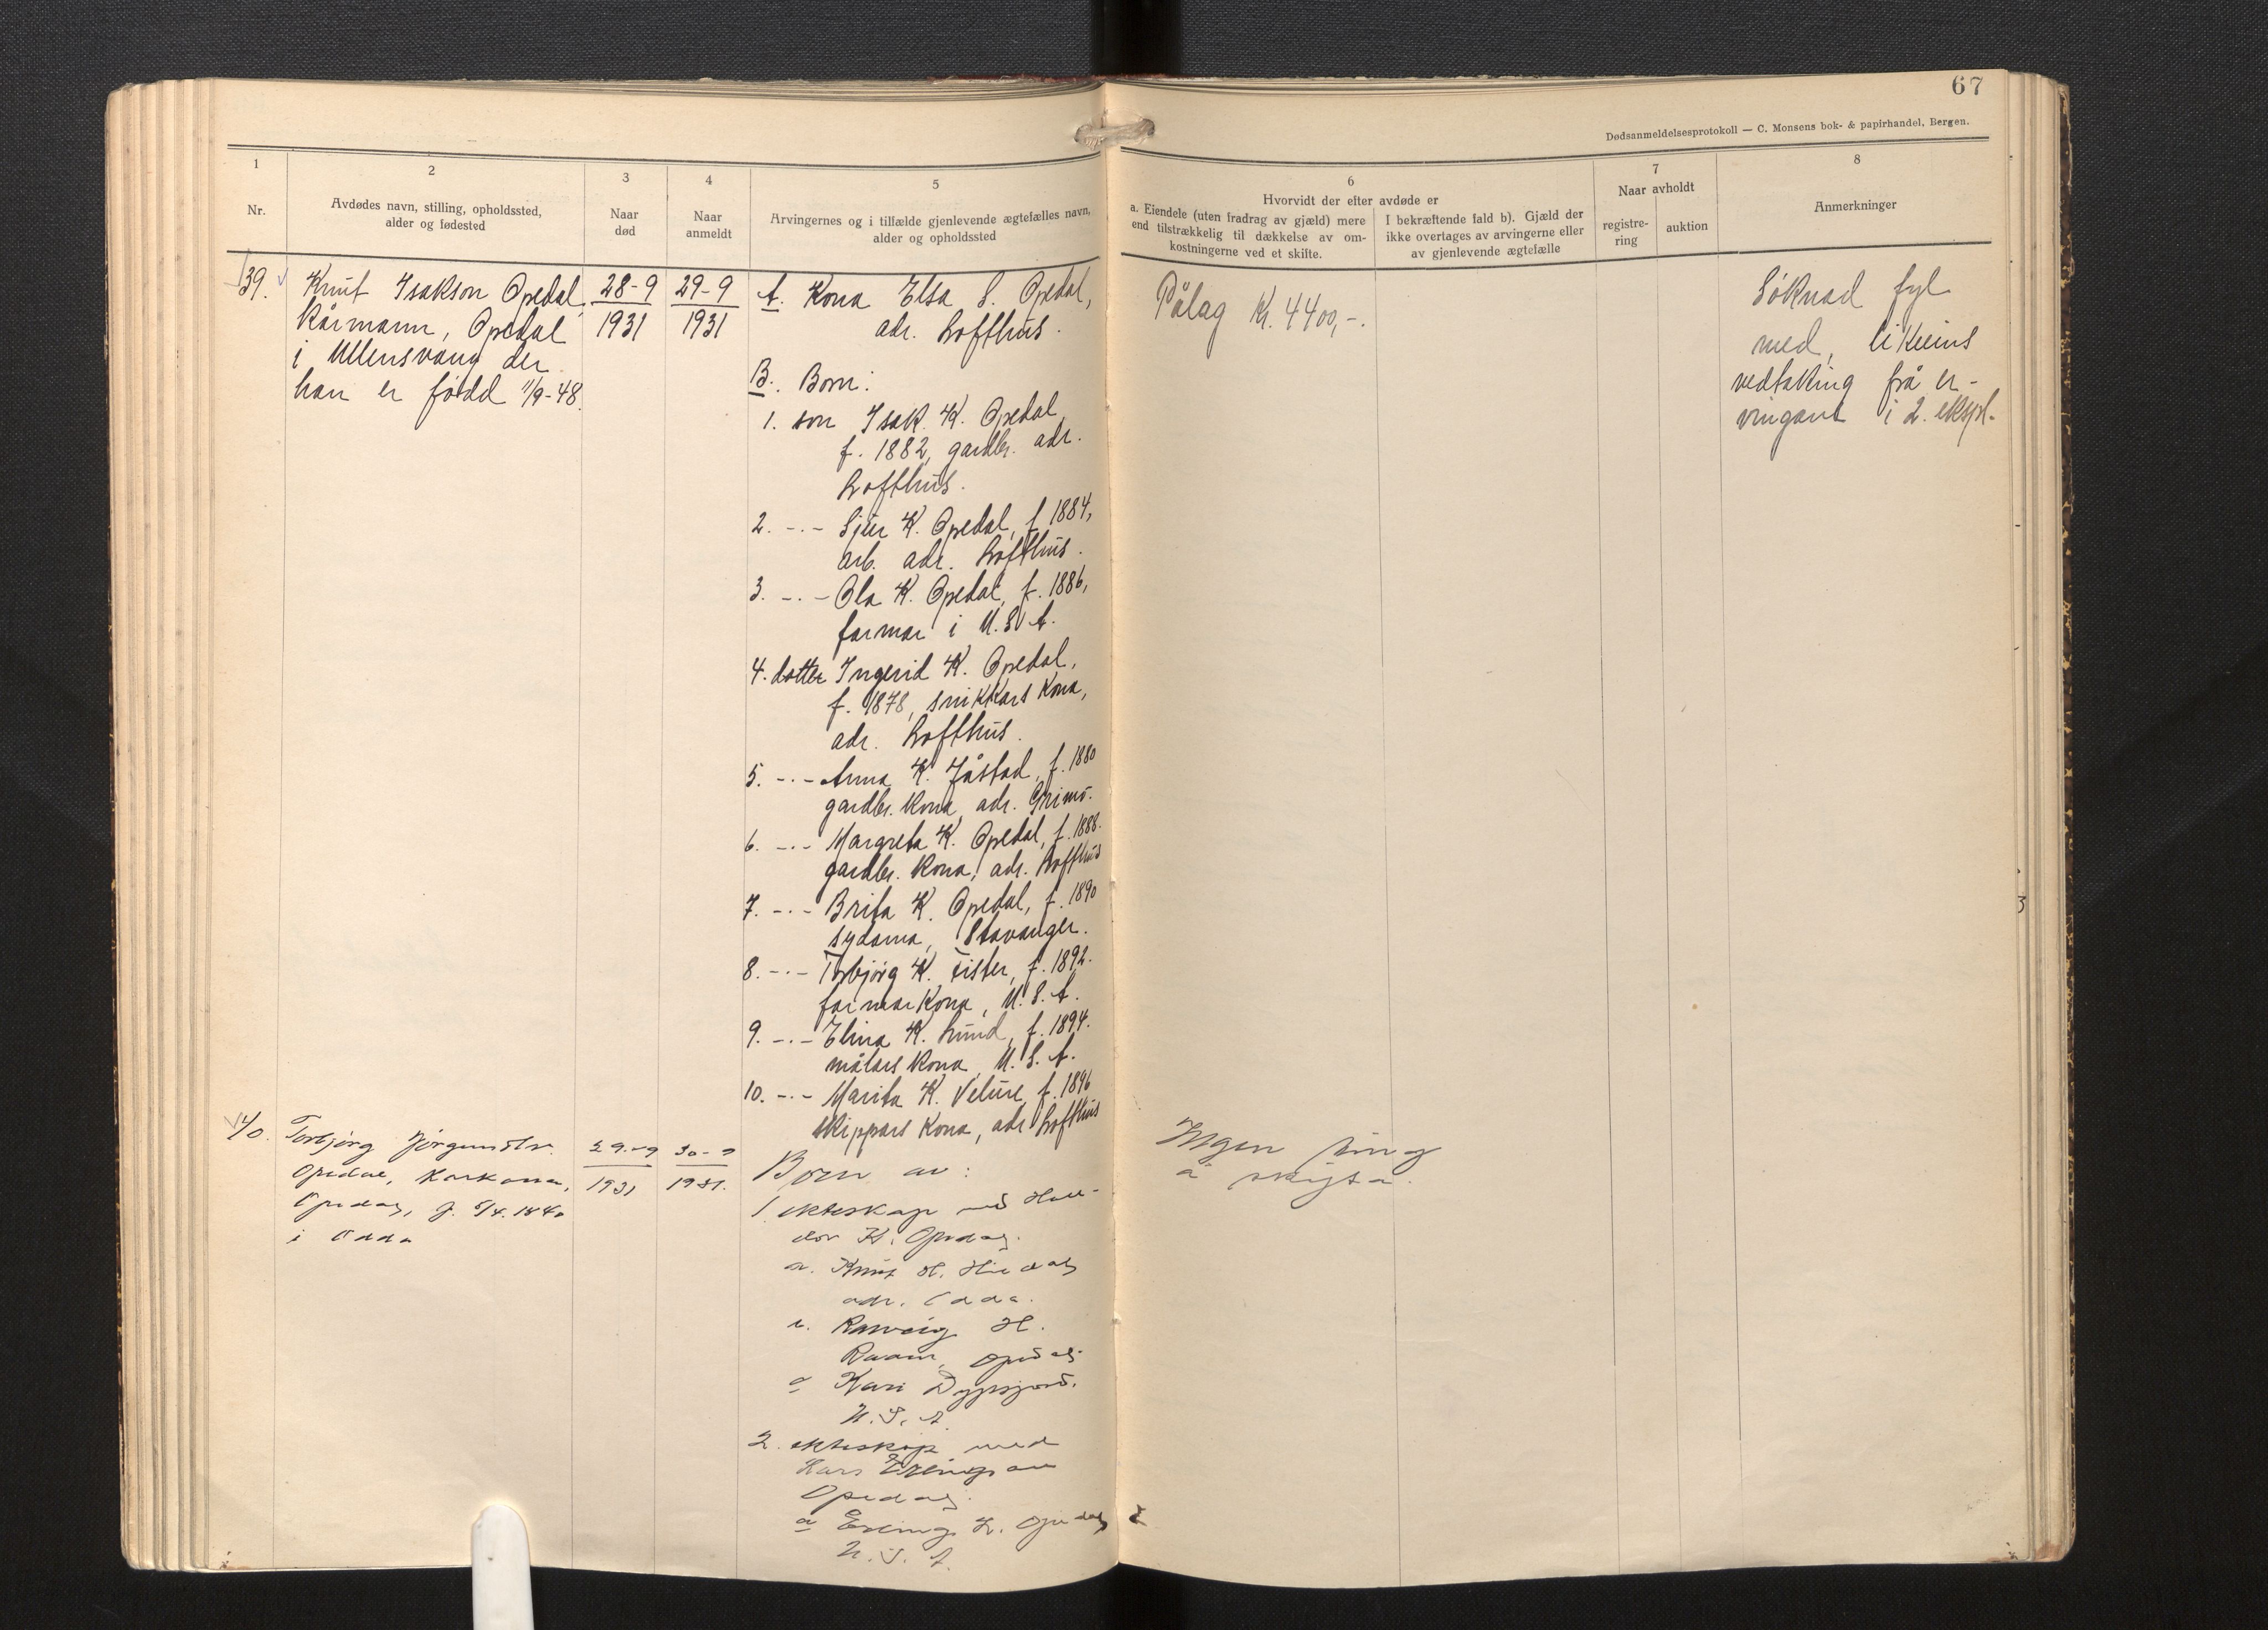 67
Dødsanmeldelsesprotokoll — C. Monsens bok- & papirhandel, Bergen.
1
2
3
4
5
6
7
8
Nr.
Avdødes navn, stilling, opholdssted,
alder og fødested
Naar
død
Naar
anmeldt
Arvingernes og i tilfælde gjenlevende ægtefælles navn,
alder og opholdssted
Hvorvidt der efter avdøde er
a. Eiendele (uten fradrag av gjæld) mere
end tilstrækkelig til dækkelse av om-
kostningerne ved et skifte.
I bekræftende fald b). Gjæld der
ikke overtages av arvingerne eller
av gjenlevende ægtefælle
Naar avholdt
registre-
ring
auktion
Anmerkninger
39.
Knut Isakson Opedal,
kårmann, Opedal
i Ullensvang der
han er fødd 11/9-48.
28-9
1931
29-9
1931
A. Kona Elsa S. Opedal,
adr. Lofthus.
B. Born:
1. son Isak K. Opedal,
f. 1882, gardbr. adr.
Lofthus.
2. -.- Sjur K. Opedal, f. 1884,
arb. adr. Lofthus.
3. -.- Ola K. Opedal, f. 1886,
farmar i U.S.A.
4. dotter Ingerid K. Opedal,
f. 1878, snikkars kona,
adr. Lofthus.
5. -.- Anna K. Jåstad, f. 1880
gardbr. kona, adr. Grimo.
6. -.- Margreta K. Opedal, f. 1888.
gardbr. kona, adr. Lofthus
7. -.- Brita K. Opedal, f. 1890
sydama, Stavanger.
8. -.- Torbjörg K. Fister, f. 1892.
farmarkona, U.S.A.
9. -.- Elina K. Lund, f. 1894.
målars kona, U.S.A.
10. -.- Marita K. Velure, f. 1896
skippars kona, adr. Lofthus
Pålag kr. 4400,-.
Söknad fyl
med, likeeins
vedtaking frå er-
vingane i 2. ekspl.
40.
Torbjörg Jörgensdtr.
Opedal, kårkona,
Opedal, f. 5/4. 1840
i Odda
29.-9
1931
30-9
1931.
Born av:
1. ekteskap med Hall-
dor K. Opedal.
a. Knut H.
adr. Odda.
Ranveig H.
Opedal
c Kari
U.S.A.
2. ekteskap med
Lars Erlingson
Opedal.
a Erling L. Opedal
U.S.A.
Ingen ting
å skifta.